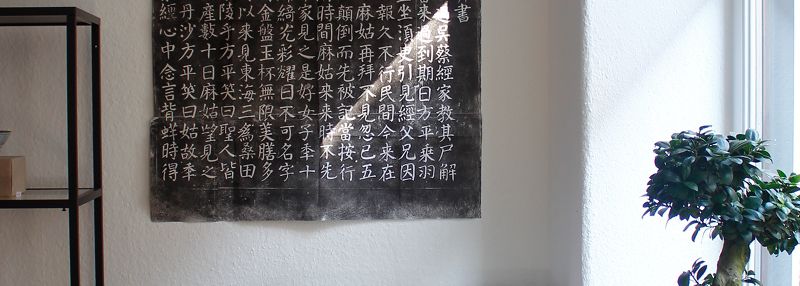 書
過吳蔡經家教其尸解
來過到期日方平乘羽
坐須臾引見經父兄因
報久不行民間今來在
麻姑再拜不見忽已五
顛倒而先被記當按行
時間麻姑來來時不先
家見之是好女子秊十
綺光彩耀日不可名字
金盤玉杯無限美膳多
以來見東海三為桑田
陵乎方平笑曰聖人皆
產數十日麻姑望見之
丹沙方平笑曰姑故秊
經心中念言背蛘時得